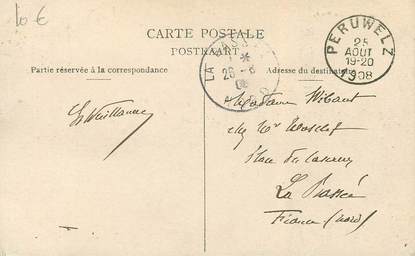 10 €
CARTE POSTALE
POSTKAART
PERUWELZ
25
AOUT
19-20
1908
LA BASSÉE
26 -8
08
Partie réservée à la correspondance
Adresse du destinataire
Madame Wibaut
chez Mr
Place du
La Bassée
France (Nord)